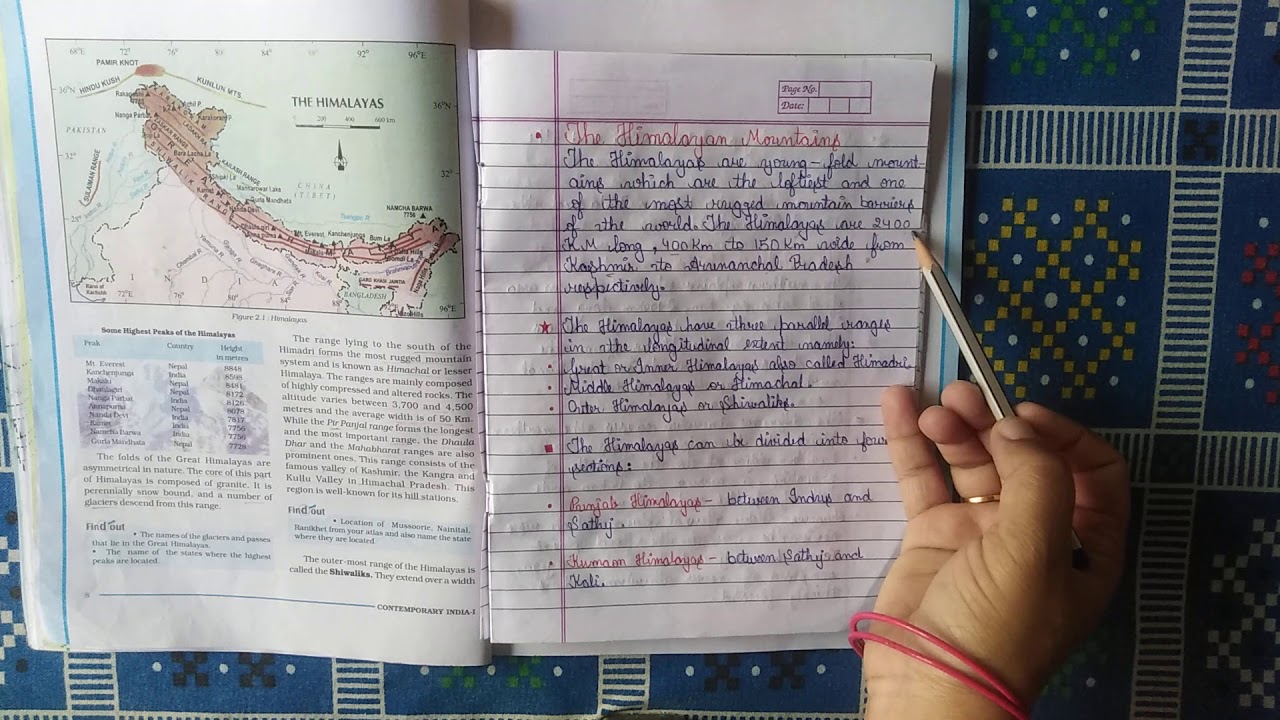 68°E
72°
76°
80°
84°
88°
92°
96°E
PAMIR KNOT
HINDU KUSH
KUNLUN MTS.
36°N
THE HIMALAYAS
36°N
0 200 400 600 km
Nanga Parbat
Karakoram P.
PAKISTAN
32°
32°
SULAIMAN RANGE
Bara Lacha La
Shipki La
Mansarowar Lake
Gurla Mandhata
CHINA
(TIBET)
NAMCHA BARWA
7756
Tsangpo R.
Mt. Everest
Kanchenjunga
Bum La
Yamuna R.
Ganga R.
Ghaghara R.
Chambal R.
Brahmaputra R.
GARO KHASI JAINTIA
BANGLADESH
Mizo Hills
I N D I A
Rann of
Kachchh
72°E
76°
80°
84°
96°E
Figure 2.1 : Himalayas
Some Highest Peaks of the Himalayas
Peak Country Height
in metres
Mt. Everest Nepal 8848
Kanchenjunga India 8598
Makalu Nepal 8481
Dhaulagiri Nepal 8172
Nanga Parbat India 8126
Annapurna Nepal 8078
Nanda Devi India 7817
Kamet India 7756
Namcha Barwa India 7756
Gurla Mandhata Nepal 7728
The folds of the Great Himalayas are
asymmetrical in nature. The core of this part
of Himalayas is composed of granite. It is
perennially snow bound, and a number of
glaciers descend from this range.
Find out
• The names of the glaciers and passes
that lie in the Great Himalayas.
• The name of the states where the highest
peaks are located.
The range lying to the south of the
Himadri forms the most rugged mountain
system and is known as Himachal or lesser
Himalaya. The ranges are mainly composed
of highly compressed and altered rocks. The
altitude varies between 3,700 and 4,500
metres and the average width is of 50 Km.
While the Pir Panjal range forms the longest
and the most important range, the Dhaula
Dhar and the Mahabharat ranges are also
prominent ones. This range consists of the
famous valley of Kashmir, the Kangra and
Kullu Valley in Himachal Pradesh. This
region is well-known for its hill stations.
Find out
• Location of Mussoorie, Nainital,
Ranikhet from your atlas and also name the state
where they are located
The outer-most range of the Himalayas is
called the Shiwaliks. They extend over a width
8
CONTEMPORARY INDIA-I
Page No.
Date:
• The Himalayan Mountains
The Himalayas are young-fold mount-
ains which are the loftiest and one
of the most rugged mountain barriers
of the world. The Himalayas are 2400
K.M long, 400Km to 150Km wide from
Kashmir to Arunanchal Pradesh
respectively.
★ The Himalayas have three parallel ranges
in the longitudinal extent namely:
• Great or Inner Himalayas also called Himadri.
• Middle Himalayas or Himachal.
• Outer Himalayas or Shiwaliks.
■ The Himalayas can be divided into four
sections:
• Punjab Himalayas - between Indus and
Satluj.
• Kumaon Himalayas - between Satluj and
Kali.